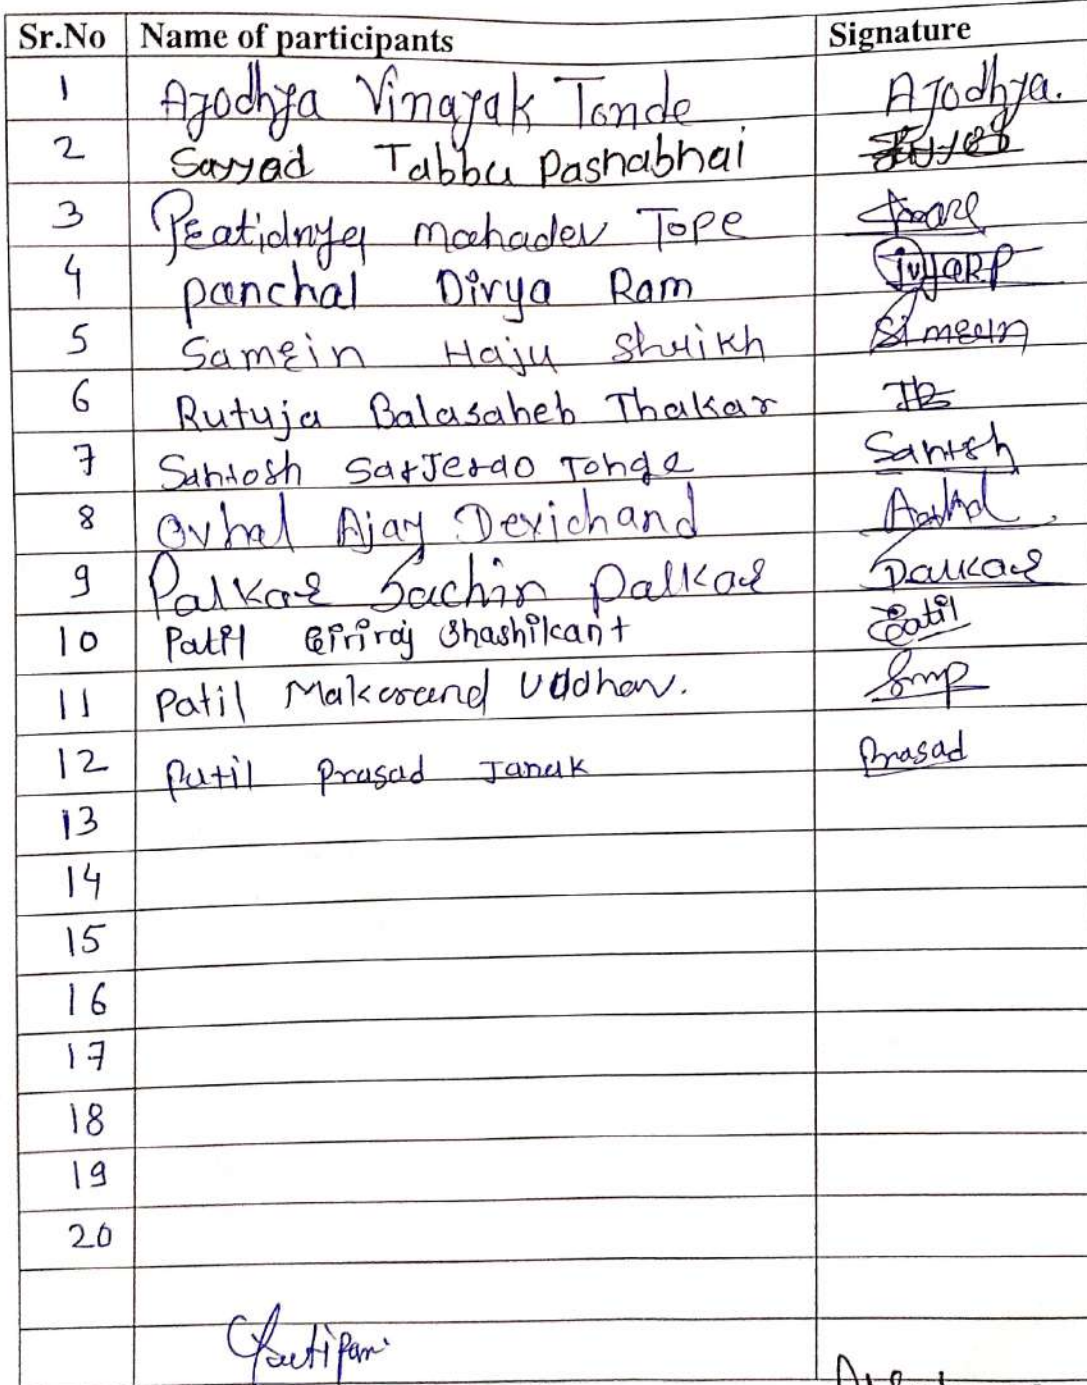 Sr.No Name of participants Signature
1 Ayodhya Vinayak Tonde Ayodhya.
2 Sayyad Tabbu Pashabhai
3 mahadev Tope
4 panchal Divya Ram
5 Samein Haju Shaikh
6 Rutuja Balasaheb Thakar
7 Santosh Sarjerao Tonde Santosh
8 Ovhal Ajay Devichand
9 Palkar Sachin Palkar Palkar
10 Patil Giriraj Shashikant Patil
11 Patil Makarand Uddhav. Smp
12 Patil Prasad Janak Prasad
13
14
15
16
17
18
19
20